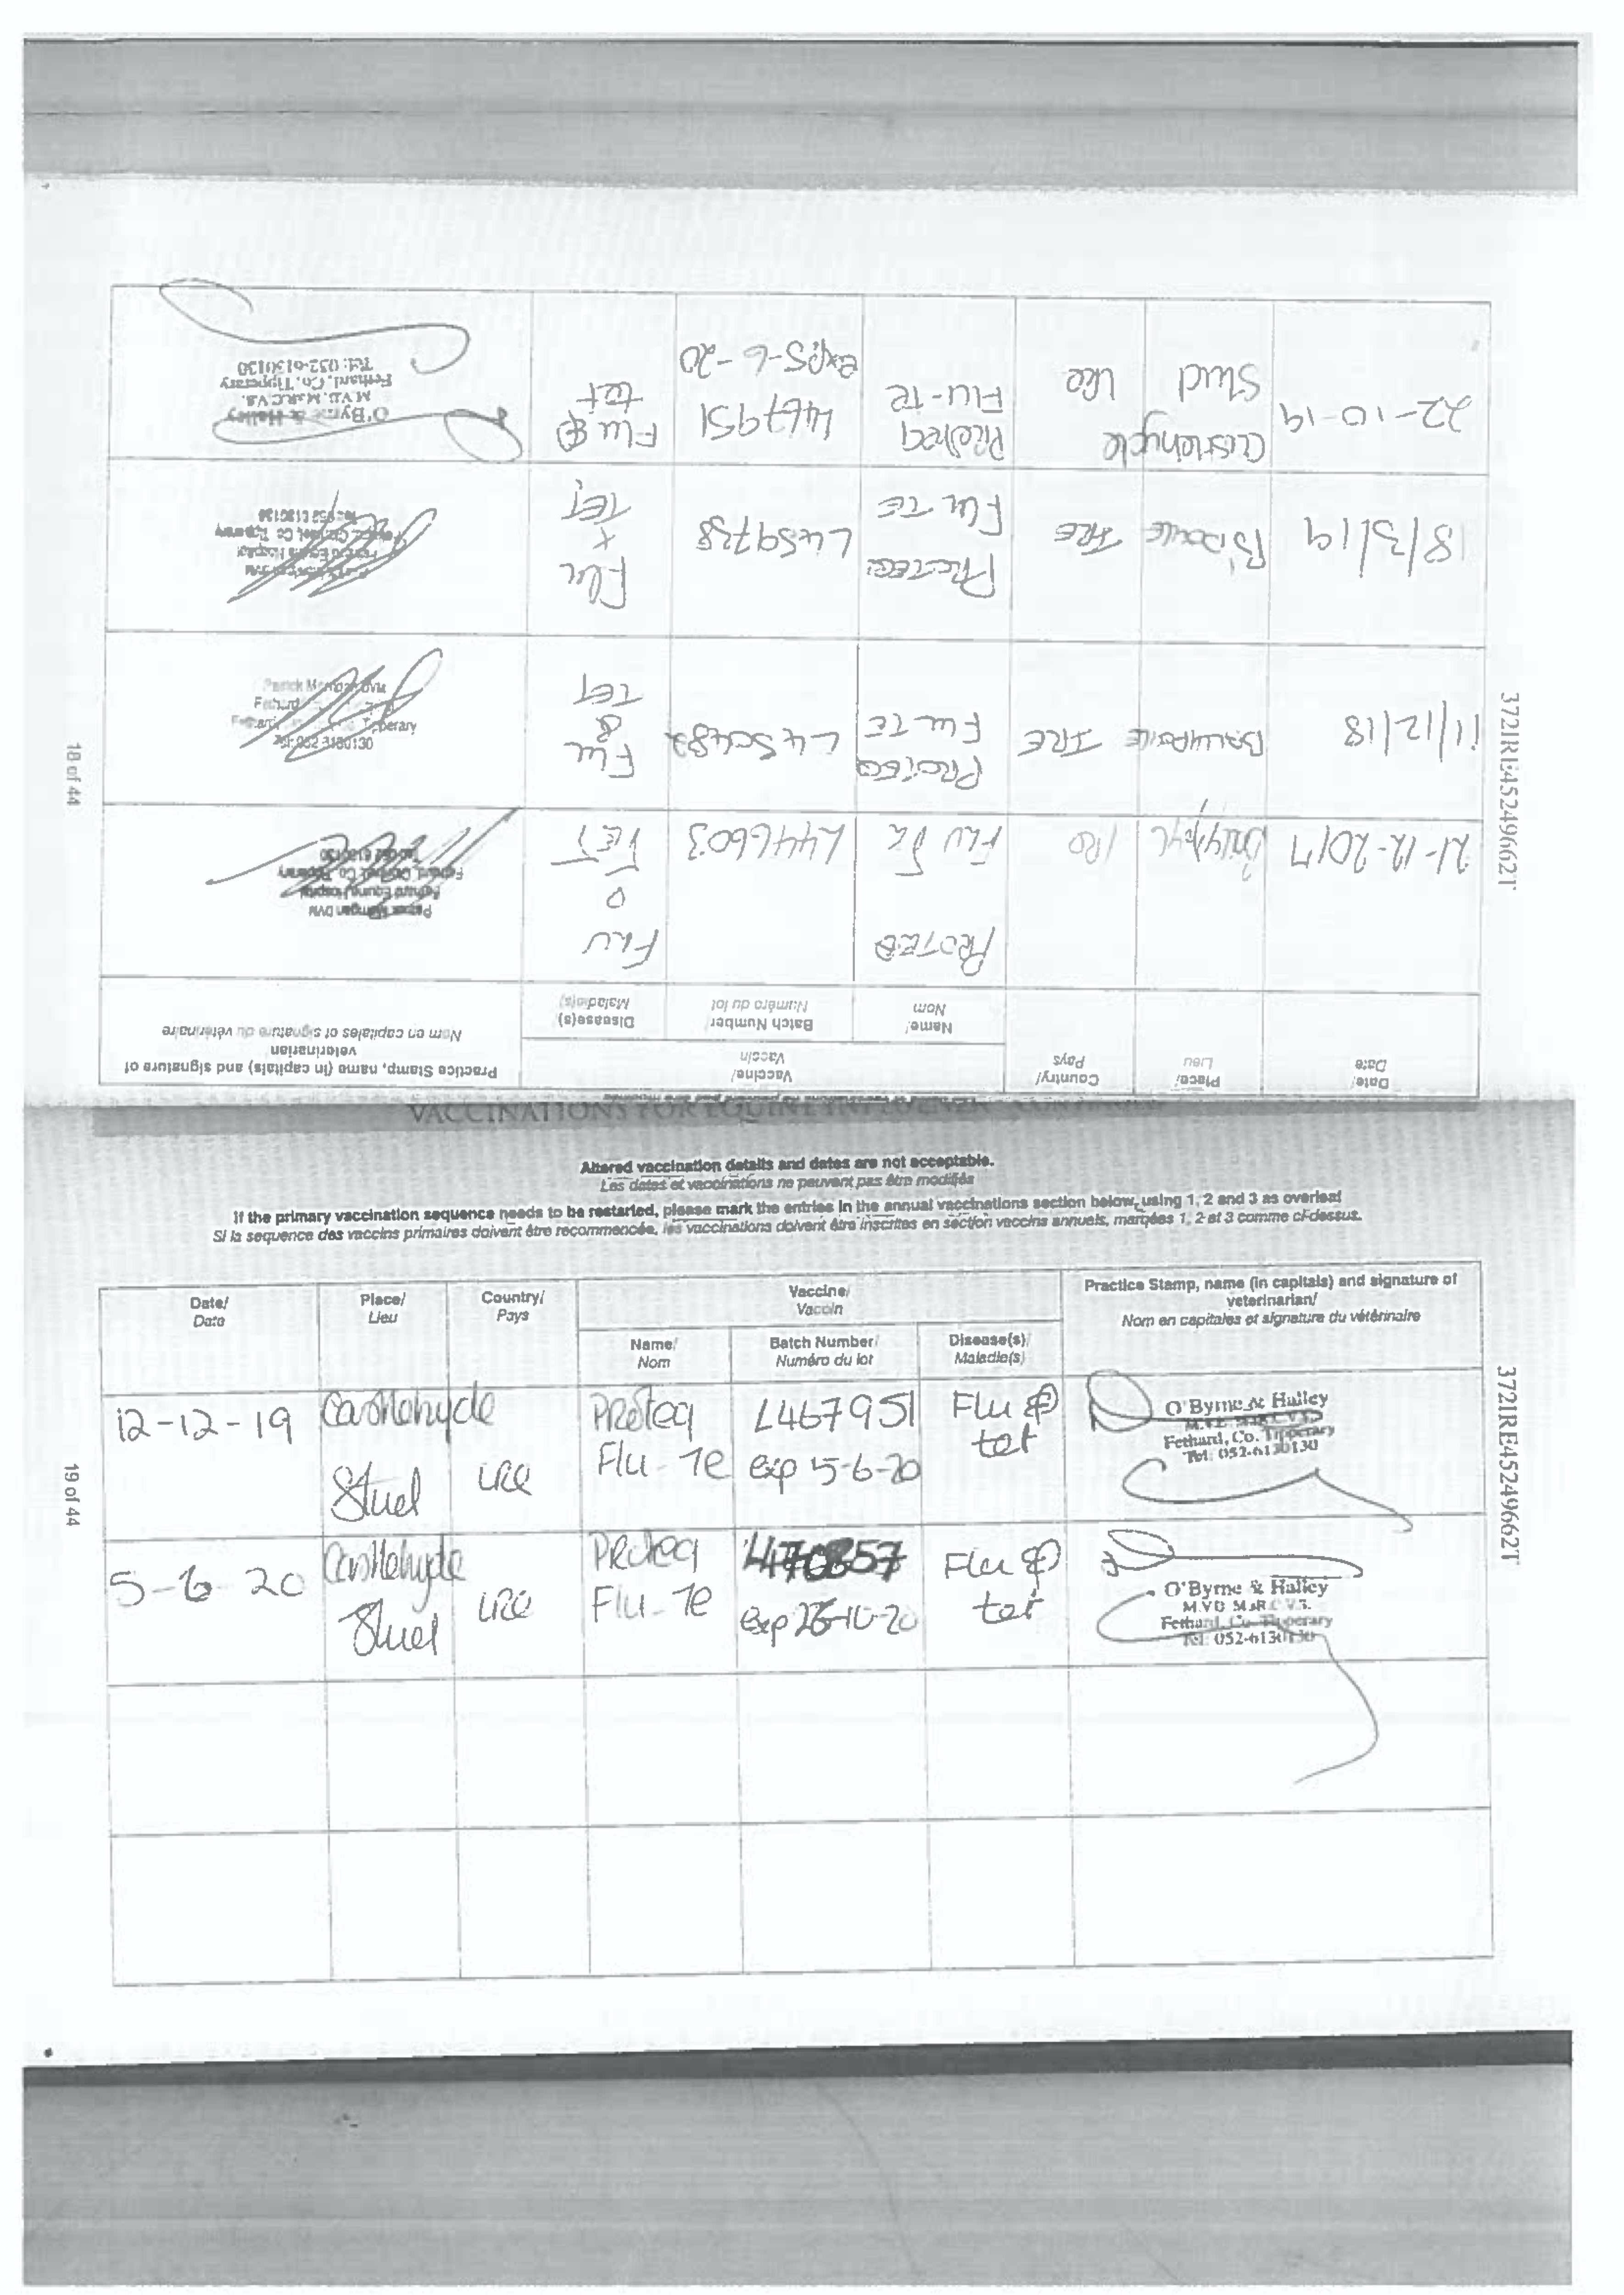 Date/
Date
Place/
Lieu
Country/
Pays
Vaccine/
Vaccin
Name/
Nom
Batch Number/
Numéro du lot
Disease(s)
Maladie(s)
Practice Stamp, name (in capitals) and signature of
veterinarian
Nom en capitales et signature du vétérinaire
21-12-2017
PROTEQ
FLU TE
L446603
FLU
TET
Patrick Morrigan DVM
Fethard Equine Hospital
Fethard, Clonmel, Co. Tipperary
Tel: 052 6130130
11/12/18
IRE
PROTEQ
FLU TE
FLU
&
TET
Tel: 052 6130130
18/3/19
IRE
PROTEQ
FLU TE
L459738
FLU
+
TET
Fethard Equine Hospital
Fethard, Clonmel, Co. Tipperary
Tel: 052 6130130
22-10-19
Castlehyde
Stud
IRE
Proteq
Flu-Te
L467951
exp 5-6-20
Flu &
tet
O'Byrne & Halley
M.V.B. M.R.C.V.S.
Fethard, Co. Tipperary
Tel: 052-6130130
18 of 44
372IRE45249662T
Altered vaccination details and dates are not acceptable.
Les dates et vaccinations ne peuvent pas être modifiés
If the primary vaccination sequence needs to be restarted, please mark the entries in the annual vaccinations section below, using 1, 2 and 3 as overleaf
Si la sequence des vaccins primaires doivent être recommencée, les vaccinations doivent être inscrites en section vaccins annuels, marquées 1, 2 et 3 comme ci-dessus.
Date/
Date
Place/
Lieu
Country/
Pays
Vaccine/
Vaccin
Name/
Nom
Batch Number/
Numéro du lot
Disease(s)/
Maladie(s)
Practice Stamp, name (in capitals) and signature of
veterinarian/
Nom en capitales et signature du vétérinaire
12-12-19
Castlehyde
Stud
IRE
Proteq
Flu-Te
L467951
exp 5-6-20
Flu &
tet
O'Byrne & Halley
M.V.B. M.R.C.V.S.
Fethard, Co. Tipperary
Tel: 052-6130130
5-6-20
Castlehyde
Stud
IRE
Proteq
Flu-Te
Flu &
tet
O'Byrne & Halley
M.V.B. M.R.C.V.S.
Fethard, Co. Tipperary
Tel: 052-6130130
19 of 44
372IRE45249662T